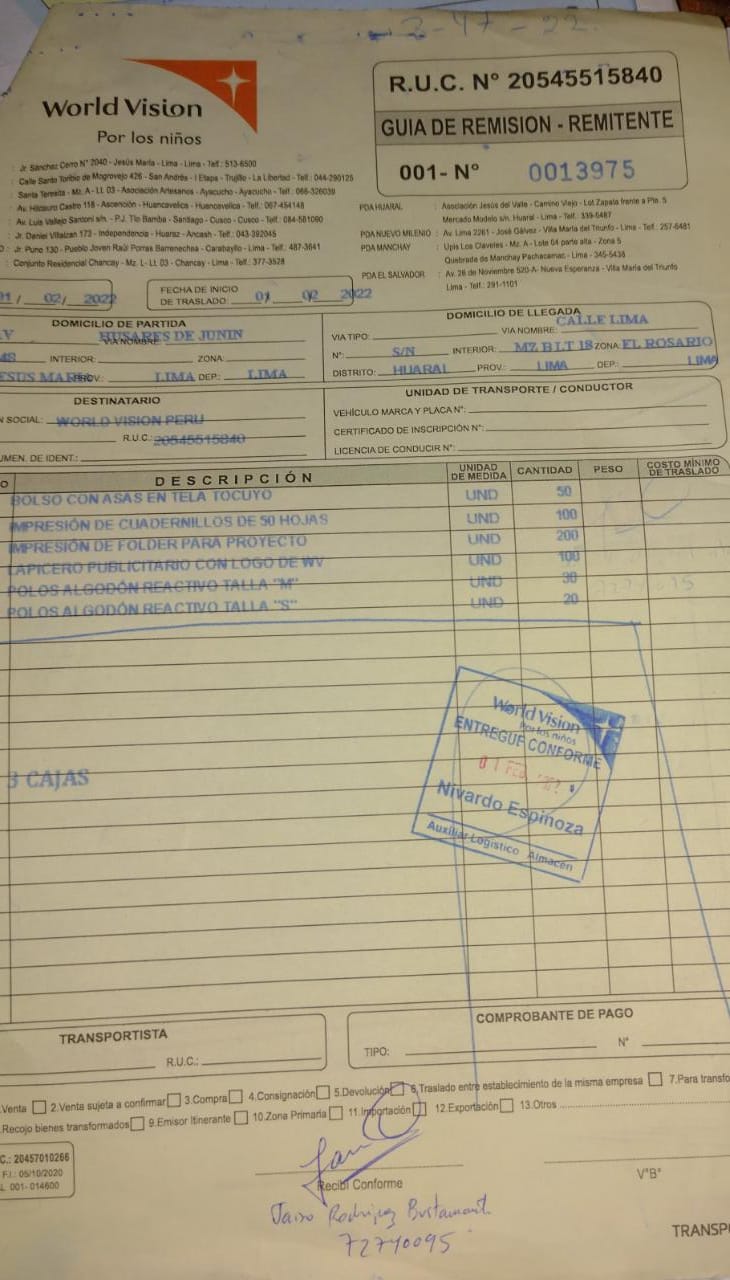 World Vision
Por los niños
R.U.C. N° 20545515840
GUIA DE REMISION - REMITENTE
001- N° 0013975
: Jr. Sánchez Cerro N° 2040 - Jesús María - Lima - Lima - Telf.: 513-6500
: Calle Santo Toribio de Mogrovejo 426 - San Andrés - I Etapa - Trujillo - La Libertad - Telf.: 044-290125
: Santa Teresita - Mz. A - Lt. 03 - Asociación Artesanos - Ayacucho - Ayacucho - Telf.: 066-326039
: Av. Hildauro Castro 118 - Ascención - Huancavelica - Huancavelica - Telf.: 067-454148
: Av. Luis Vallejo Santoni s/n. - P.J. Tío Bamba - Santiago - Cusco - Cusco - Telf.: 084-581090
: Jr. Daniel Villaizan 173 - Independencia - Huaraz - Ancash - Telf.: 043-392045
: Jr. Puno 130 - Pueblo Joven Raúl Porras Barrenechea - Carabayllo - Lima - Telf.: 487-3641
: Conjunto Residencial Chancay - Mz. L - Lt. 03 - Chancay - Lima - Telf.: 377-3528
PDA HUARAL : Asociación Jesús del Valle - Camino Viejo - Lot Zapata frente a Pte. 5
Mercado Modelo s/n. Huaral - Lima - Telf.: 339-5487
PDA NUEVO MILENIO : Av. Lima 2261 - José Gálvez - Villa María del Triunfo - Lima - Telf.: 257-6481
PDA MANCHAY : Upis Los Claveles - Mz. A - Lote 04 parte alta - Zona 5
Quebrada de Manchay Pachacamac - Lima - 345-5438
PDA EL SALVADOR : Av. 26 de Noviembre 520-A- Nueva Esperanza - Villa María del Triunfo
Lima - Telf.: 291-1101
01 / 02 / 2022
FECHA DE INICIO
DE TRASLADO: 01 02 2022
DOMICILIO DE PARTIDA
VIA NOMBRE: HUSARES DE JUNIN
INTERIOR: ZONA:
PROV.: LIMA DEP.: LIMA
DOMICILIO DE LLEGADA
VIA TIPO: VIA NOMBRE: CALLE LIMA
N°: S/N INTERIOR: MZ B LT 18 ZONA: EL ROSARIO
DISTRITO: HUARAL PROV.: LIMA DEP.: LIMA
DESTINATARIO
SOCIAL: WORLD VISION PERU
R.U.C.: 20545515840
DE IDENT.:
UNIDAD DE TRANSPORTE / CONDUCTOR
VEHÍCULO MARCA Y PLACA N°:
CERTIFICADO DE INSCRIPCIÓN N°:
LICENCIA DE CONDUCIR N°:
DESCRIPCIÓN UNIDAD DE MEDIDA CANTIDAD PESO COSTO MÍNIMO DE TRASLADO
BOLSO CON ASAS EN TELA TOCUYO UND 50
IMPRESIÓN DE CUADERNILLOS DE 50 HOJAS UND 100
IMPRESIÓN DE FOLDER PARA PROYECTO UND 200
LAPICERO PUBLICITARIO CON LOGO DE WV UND 100
POLOS ALGODÓN REACTIVO TALLA "M" UND 30
POLOS ALGODÓN REACTIVO TALLA "S" UND 20
World Vision
Por los niños
ENTREGUE CONFORME
01 FEB
Nivardo Espinoza
Auxiliar Logístico Almacén
3 CAJAS
TRANSPORTISTA
R.U.C.:
COMPROBANTE DE PAGO
TIPO: N°
Venta 2.Venta sujeta a confirmar 3.Compra 4.Consignación 5.Devolución 6.Traslado entre establecimiento de la misma empresa 7.Para
Recojo bienes transformados 9.Emisor Itinerante 10.Zona Primaria 11.Importación 12.Exportación 13.Otros
C.: 20457010266
F.I.: 05/10/2020
001- 014600
Recibí Conforme
V°B°
Jairo Rodriguez
72740095